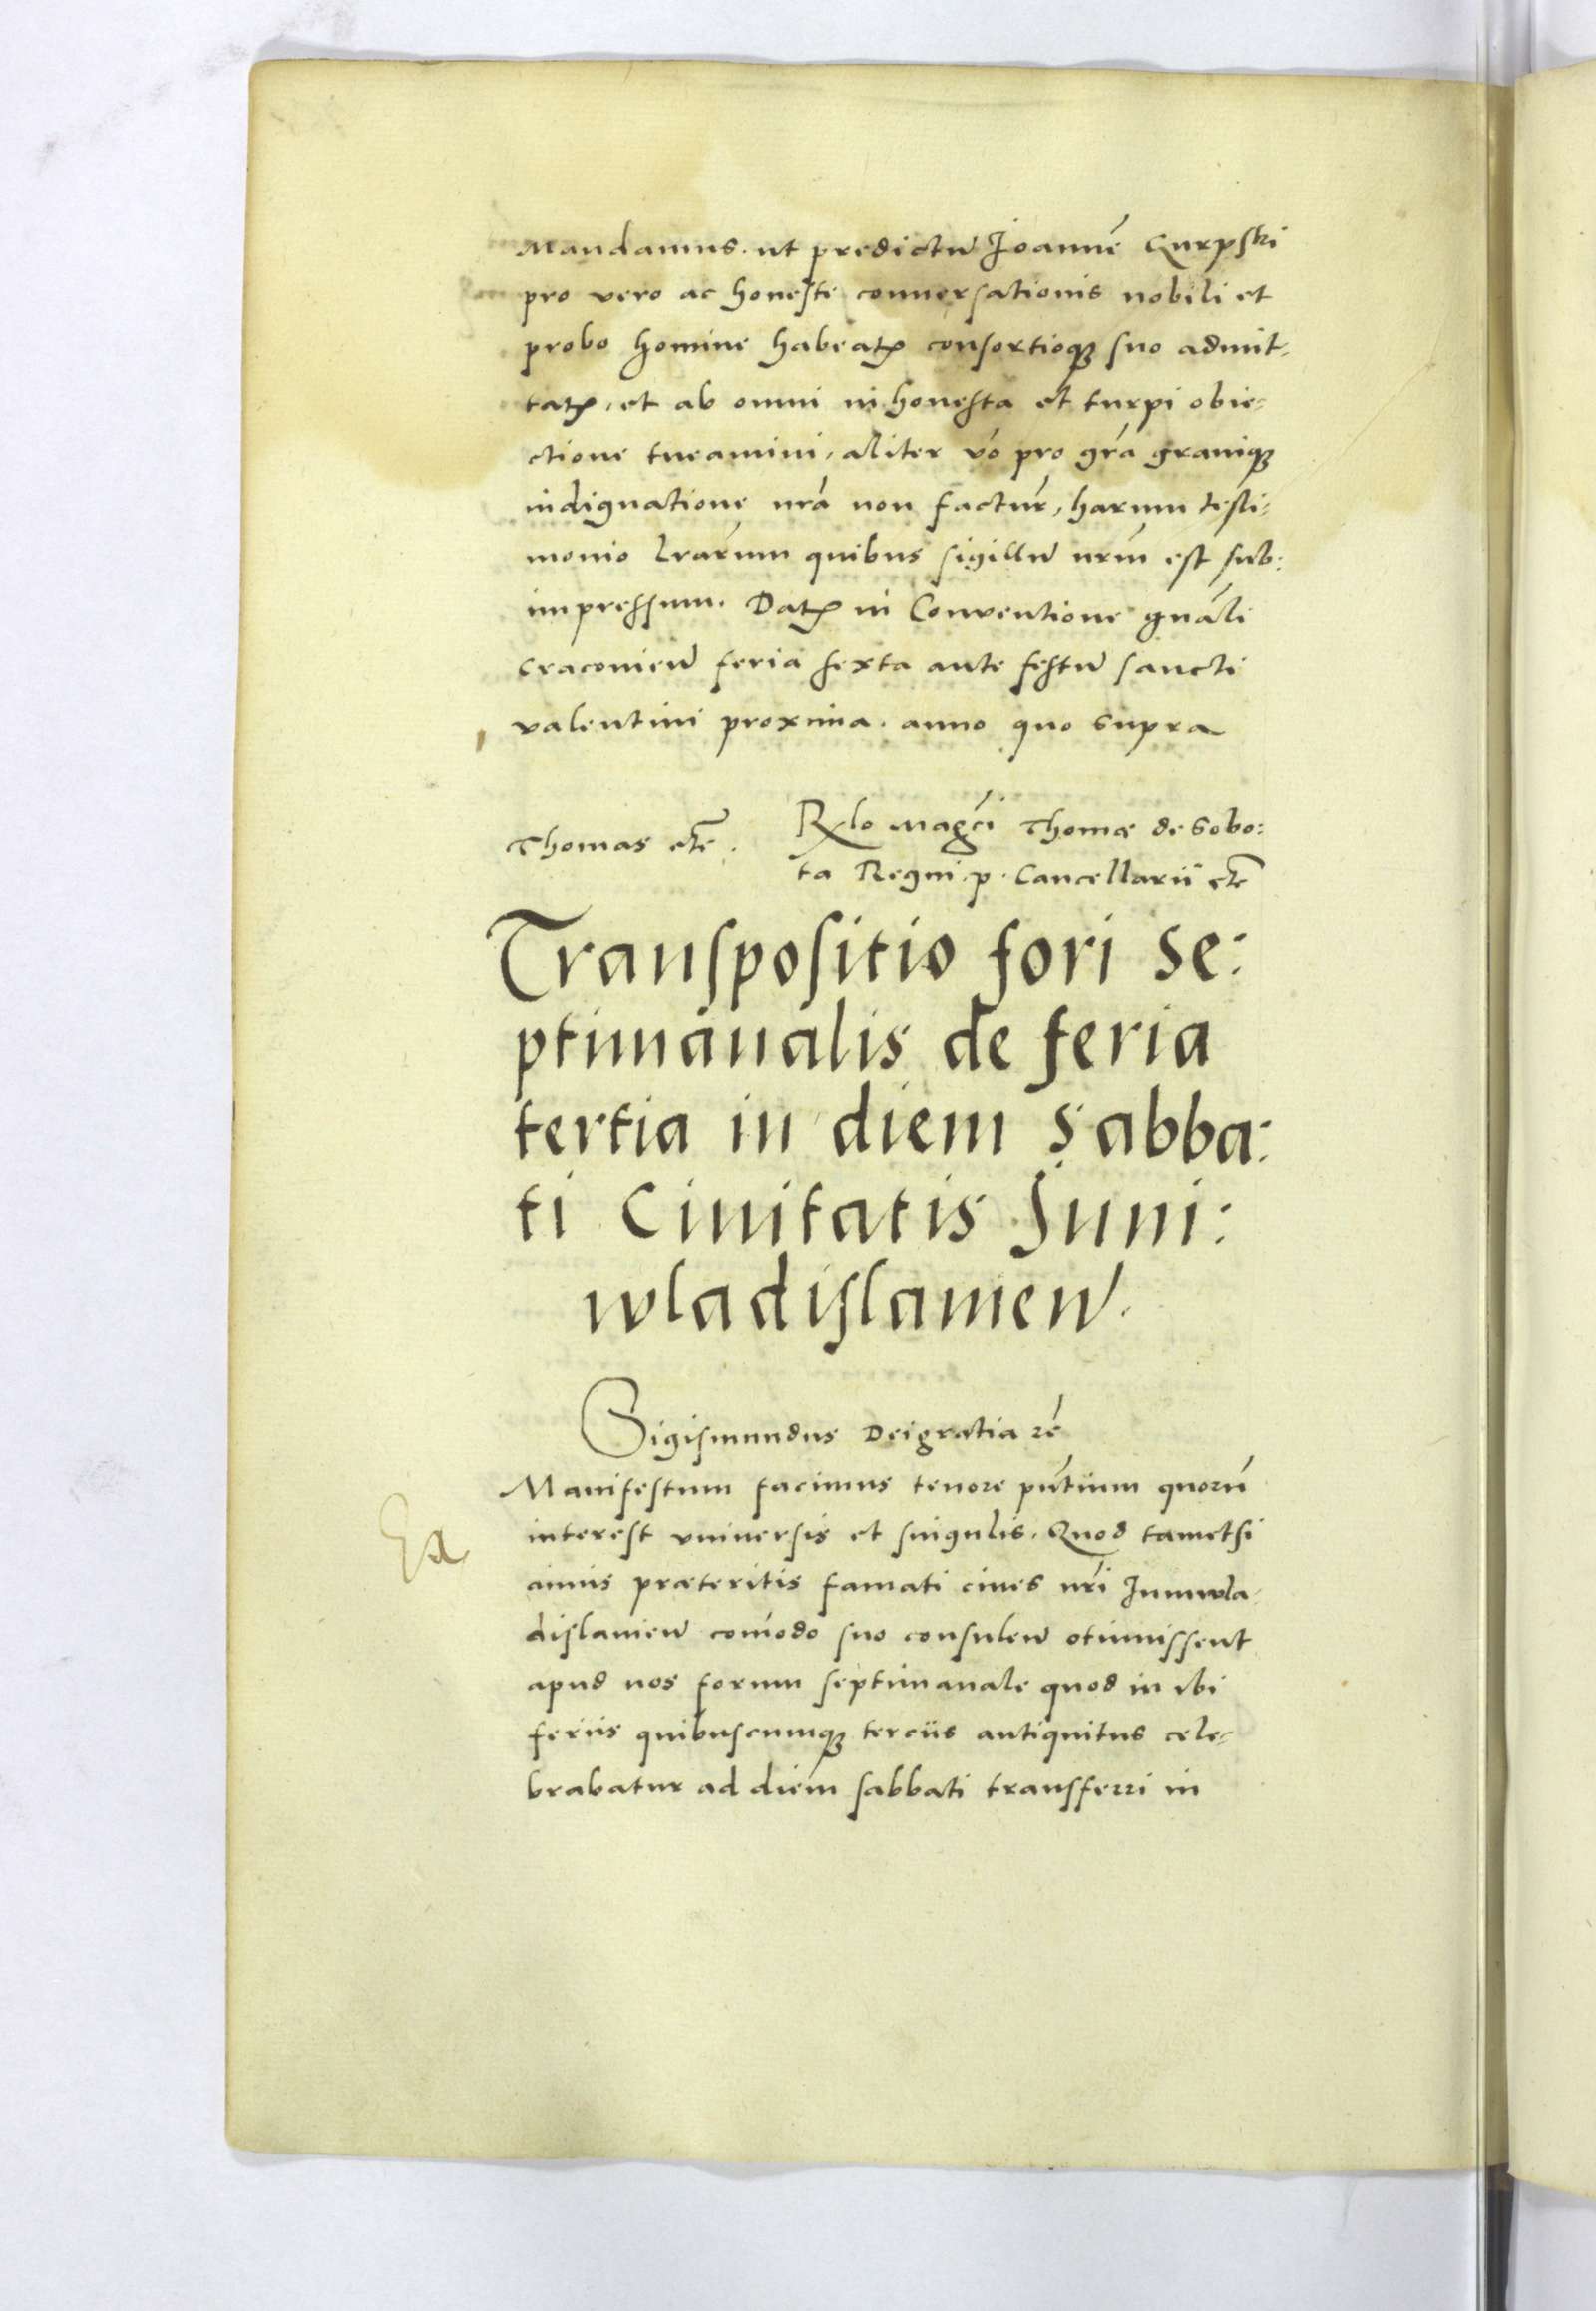 Mandamus. ut predictu Joannē Kurpski
pro vero ac honeste conuersationis nobili et
probo homine habeatꝭ consortioqꝫ suo admit-
tatꝭ, et ab omni inhonesta et turpi obie-
ctione tueamini, aliter vo pro gra grauiqꝫ
indignatione nra non factur, harum testi-
monio lrarum quibus sigillu nrm est sub:
impressum. Datꝭ in Conventione gnali
Cracouien feria sexta ante festu sancti
valentini proxima. anno quo supra
Thomas etc.
Rlo Magci Thomæ de Sobo:
ta Regni .p. Cancellarii etc
Transpositio fori Se:
ptimanalis de feria
tertia in diem Sabba:
ti Ciuitatis Juni:
wladislauien.
Sigismundus Dei gratia rc
Manifestum facimus tenore pntium quoru
interest vniuersis et singulis. Quod tametsi
annis præteritis famati ciues nri Juniwla-
dislauien comodo suo consulen otinuissent
apud nos forum septimanale quod in ibi
feriis quibuscumqꝫ terciis antiquitus cele-
brabatur ad diem sabbati transferri in